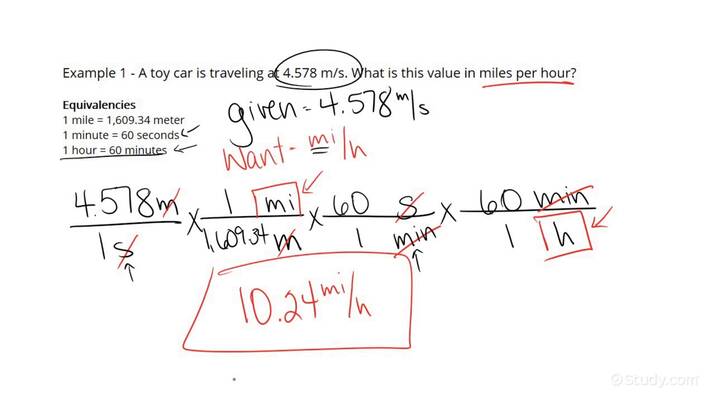 Example 1 - A toy car is traveling at 4.578 m/s. What is this value in miles per hour?
Equivalencies
1 mile = 1,609.34 meter
1 minute = 60 seconds
1 hour = 60 minutes
given = 4.578 m/s
Want = mi/h
4.578m × 1 mi × 60 s × 60 min
1 s 1,609.34 m 1 min 1 h
10.24 mi/h
©Study.com